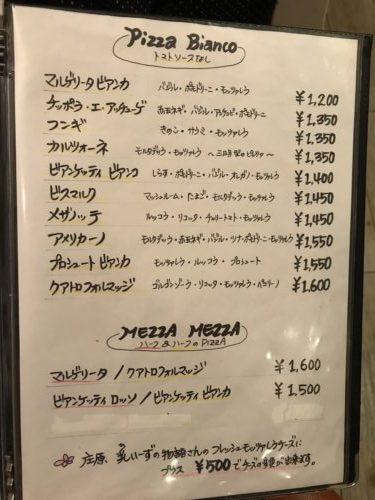 Pizza Bianco
トマトソースなし
マルゲリータ ビアンカ バジル・ポモドリーニ・モッツァレラ ¥1,200
チッポラ・エ・アッチューゲ 赤玉ネギ・バジル・アンチョビ・ポモドリーニ ¥1,350
フンギ きのこ・サラミ・モッツァレラ ¥1,350
カルツォーネ モルタデッラ・モッツァレラ ～三日月型のピッツァ～ ¥1,350
ビアンケッティ ビアンコ しらす・ポモドリーニ・バジル・オレガノ・モッツァレラ ¥1,400
ビスマルク マッシュルーム・たまご・モルタデッラ・モッツァレラ ¥1,450
メザノッテ ルッコラ・リコッタ・チェリートマト・モッツァレラ ¥1,450
アメリカーノ モルタデッラ・赤玉ネギ・バジル・ツナ・ポモドリーニ・モッツァレラ ¥1,550
プロシュート ビアンカ モッツァレラ・ルッコラ・プロシュート ¥1,550
クアトロフォルマッジ ゴルゴンゾーラ・リコッタ・モッツァレラ・ペコリーノ ¥1,600
MEZZA MEZZA
ハーフ&ハーフのPIZZA
マルゲリータ / クアトロフォルマッジ ¥1,600
ビアンケッティ ロッソ / ビアンケッティ ビアンカ ¥1,500
庄原、乳ぃーずの物語さんのフレッシュモッツァレラチーズに
プラス ¥500でチーズの変更が出来ます。